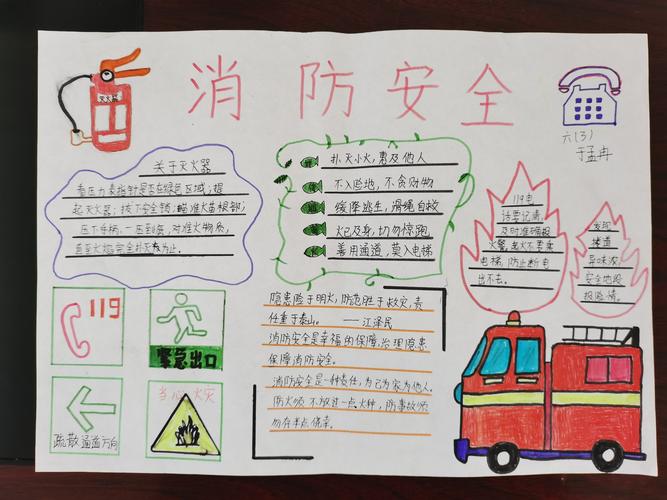 消防安全
灭火器
六(3)
于孟冉
关于灭火器
看压力表指针是否在绿色区域;提
起灭火器;拔下安全销;瞄准火苗根部;
压下手柄,一压到底,对准火物质,
直至火焰完全扑灭为止。
扑灭小火,惠及他人
不入险地,不贪财物
缓降逃生,滑绳自救
火已及身,切勿惊跑
善用通道,莫入电梯
119电
话要记清,
及时准确报
火警,起火不要乘
电梯,防止断电
出不去。
发现
楼道
异味浓,
安全地段
报险情。
119
紧急出口
疏散通道方向
当心火灾
隐患险于明火,防范胜于救灾,责
任重于泰山。 ——江泽民
消防安全是幸福的保障,治理隐患
保障消防安全。
消防安全是一种责任,为己为家为他人。
防火须不放过一点火种,防事故须
勿存半点侥幸。